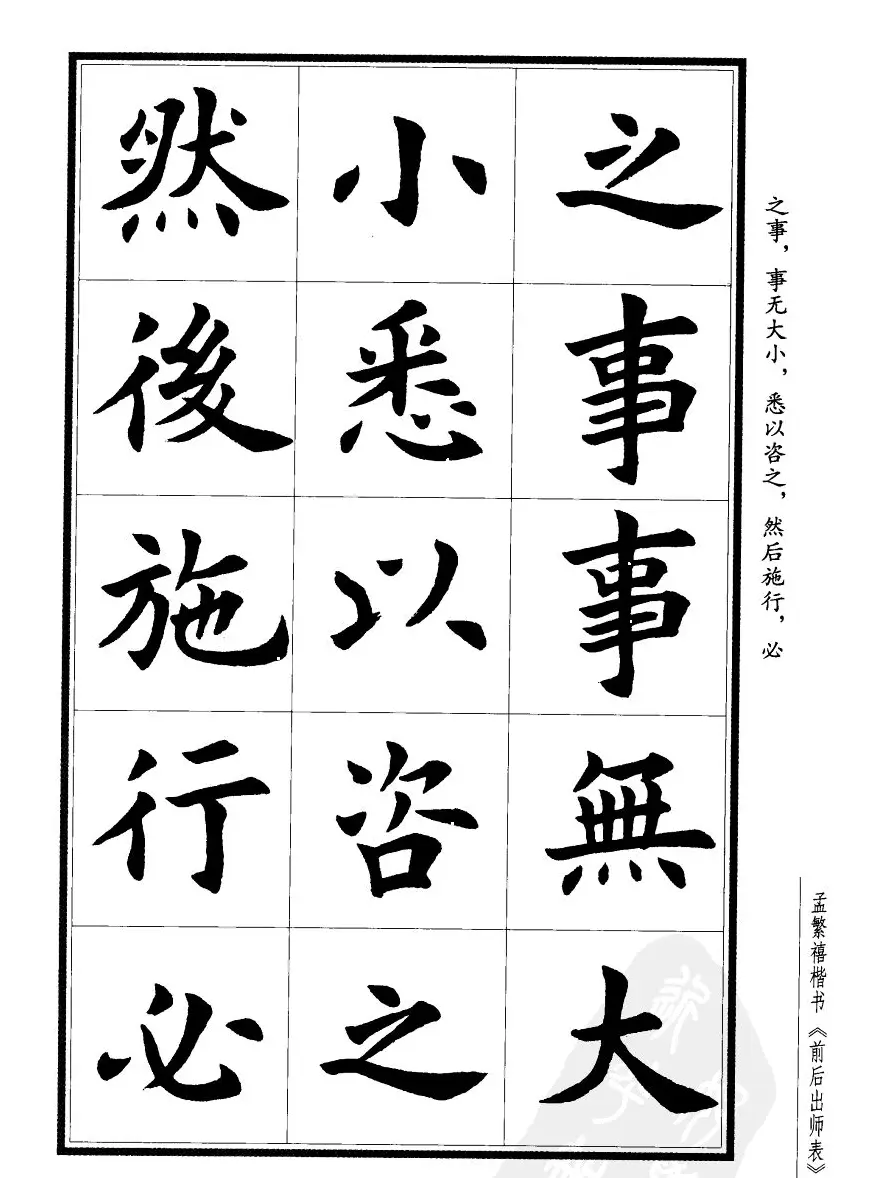 之事事無大
小悉以咨之
然後施行必
之事，事无大小，悉以咨之，然后施行，必
孟繁禧楷书《前后出师表》